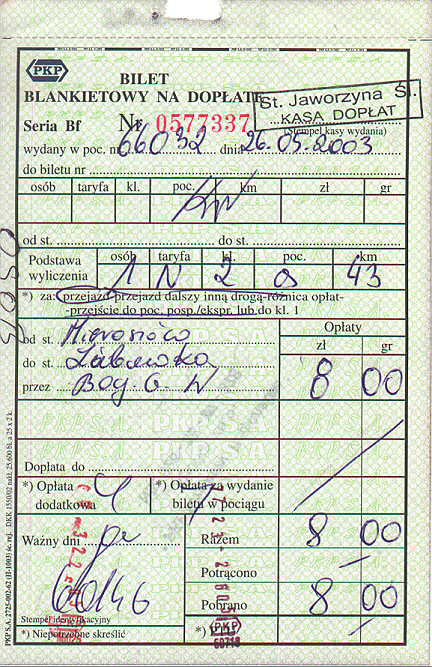 PKP
BILET
BLANKIETOWY NA DOPŁATĘ
St. Jaworzyna Śl.
KASA DOPŁAT
Seria Bf Nr 0577337
(Stempel kasy wydania)
wydany w poc. nr 66032 dnia 26.05.2003
do biletu nr
osób taryfa kl. poc. km zł gr
od st. do st.
Podstawa wyliczenia
osób taryfa kl. poc. km
1 N 2 os 43
*) za: przejazd-przejazd dalszy inną drogą-różnica opłat-
-przejście do poc. posp./ekspr. lub do kl. 1
Opłaty
zł gr
od st. Mieroszów
do st.
przez Bog G W
8 00
Dopłata do
*) Opłata dodatkowa
*) Opłata za wydanie biletu w pociągu
Ważny dni
Razem 8 00
Potrącono
Pobrano 8 00
60146
Stempel identyfikacyjny
*) Niepotrzebne skreślić
*)
PKP
PKP S.A. 2725-002-62 (H-1003) śc. rej. DKK 1550/02 nakł. 25.600 bl. a 25 x 2 k.